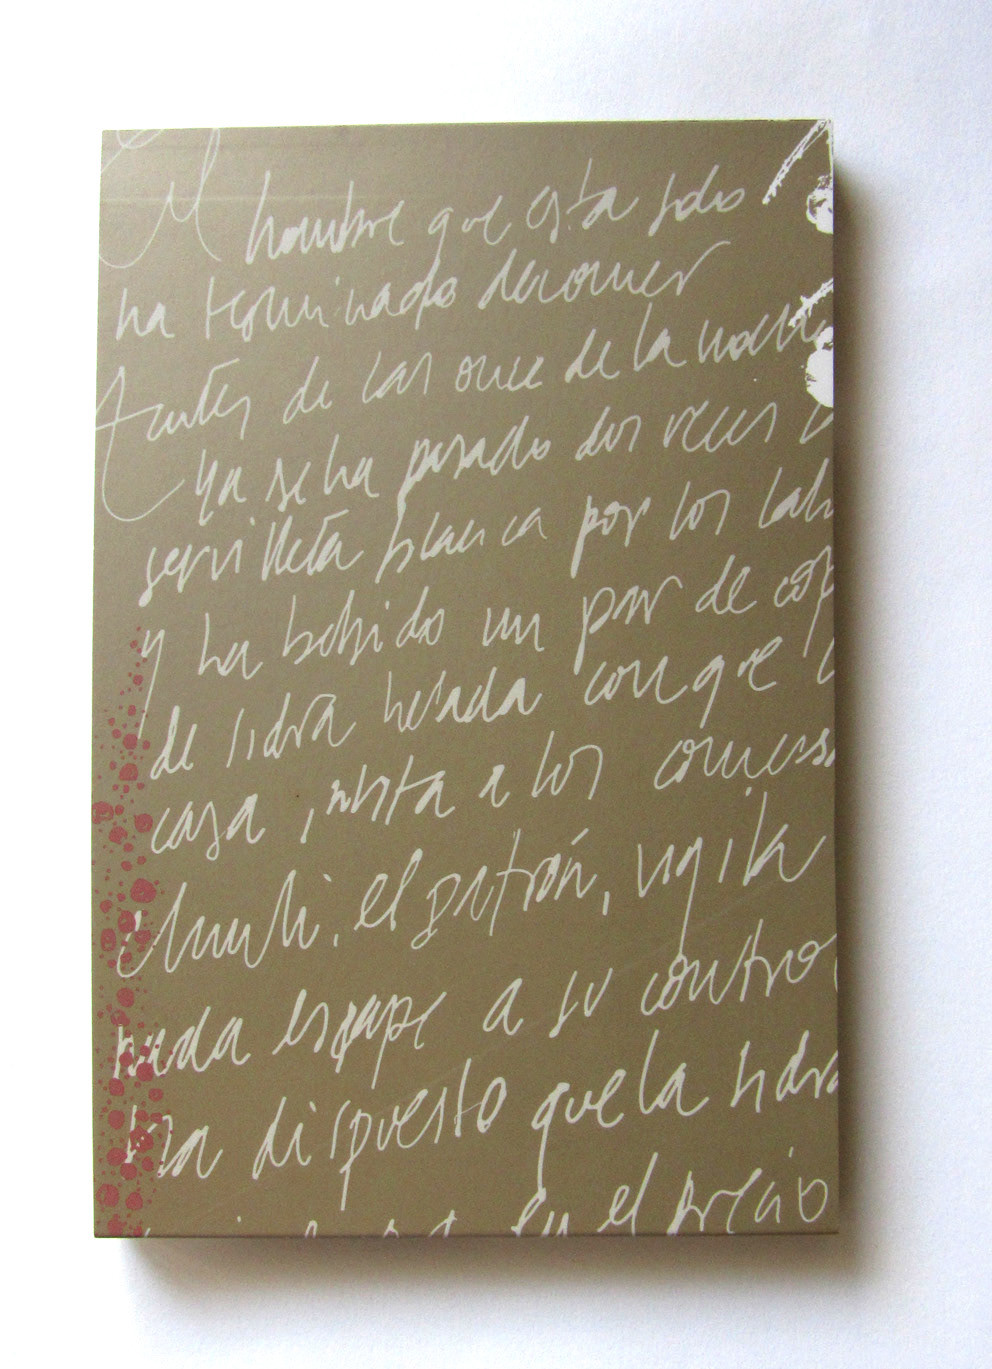 El hombre que esta solo
ha terminado de comer
Antes de las once de la noche
ya se ha pasado dos veces l
servilleta blanca por los lab
y ha bebido un par de cop
de sidra helada con que l
casa invita a los comens
el patrón, vigila
nada escape a su contro
ha dispuesto que la sidra
en el precio